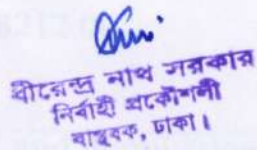 ধীরেন্দ্র নাথ সরকার
নির্বাহী প্রকৌশলী
বাস্থবক, ঢাকা।